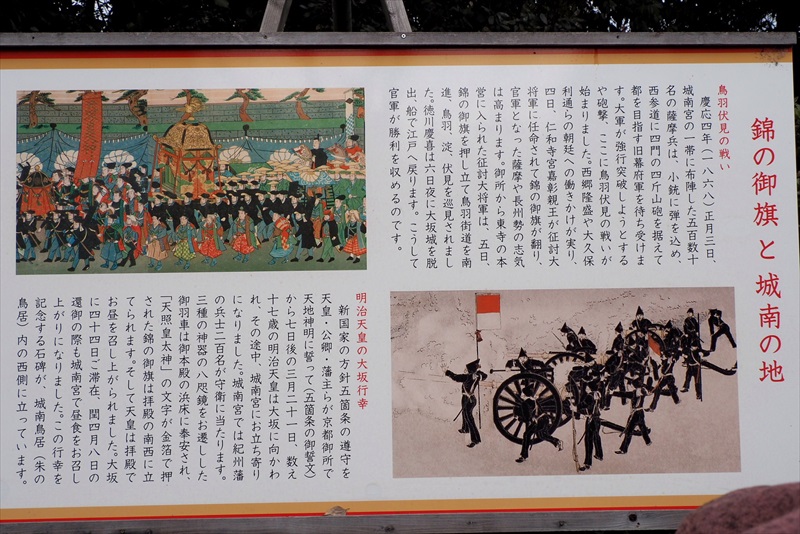 錦の御旗と城南の地
鳥羽伏見の戦い
慶応四年(一八六八)正月三日、
城南宮の一帯に布陣した五百数十
名の薩摩兵は、小銃に弾を込め、
西参道に四門の四斤山砲を据えて
都を目指す旧幕府軍を待ち受けま
す。大軍が強行突破しようとする
や砲撃、ここに鳥羽伏見の戦いが
始まりました。西郷隆盛や大久保
利通らの朝廷への働きかけが実り、
四日、仁和寺宮嘉彰親王が征討大
将軍に任命されて錦の御旗が翻り、
官軍となった薩摩や長州勢の志気
は高まります。御所から東寺の本
営に入られた征討大将軍は、五日、
錦の御旗を押し立て鳥羽街道を南
進、鳥羽、淀、伏見を巡見されまし
た。徳川慶喜は六日夜に大坂城を脱
出、船で江戸へ戻ります。こうして
官軍が勝利を収めるのです。
明治天皇の大坂行幸
新国家の方針五箇条の遵守を
天皇・公卿・藩主らが京都御所で
天地神明に誓って(五箇条の御誓文)
から七日後の三月二十一日、数え
十七歳の明治天皇は大坂に向かわ
れ、その途中、城南宮にお立ち寄り
になりました。城南宮では紀州藩
の兵士二百名が守衛に当たります。
三種の神器の八咫鏡をお遷しした
御羽車は御本殿の浜床に奉安され、
「天照皇太神」の文字が金箔で押
された錦の御旗は拝殿の南西に立
てられます。そして天皇は拝殿で
お昼を召し上がられました。大坂
に四十四日ご滞在、閏四月八日の
還御の際も城南宮で昼食をお召し
上がりになりました。この行幸を
記念する石碑が、城南鳥居(朱の
鳥居)内の西側に立っています。